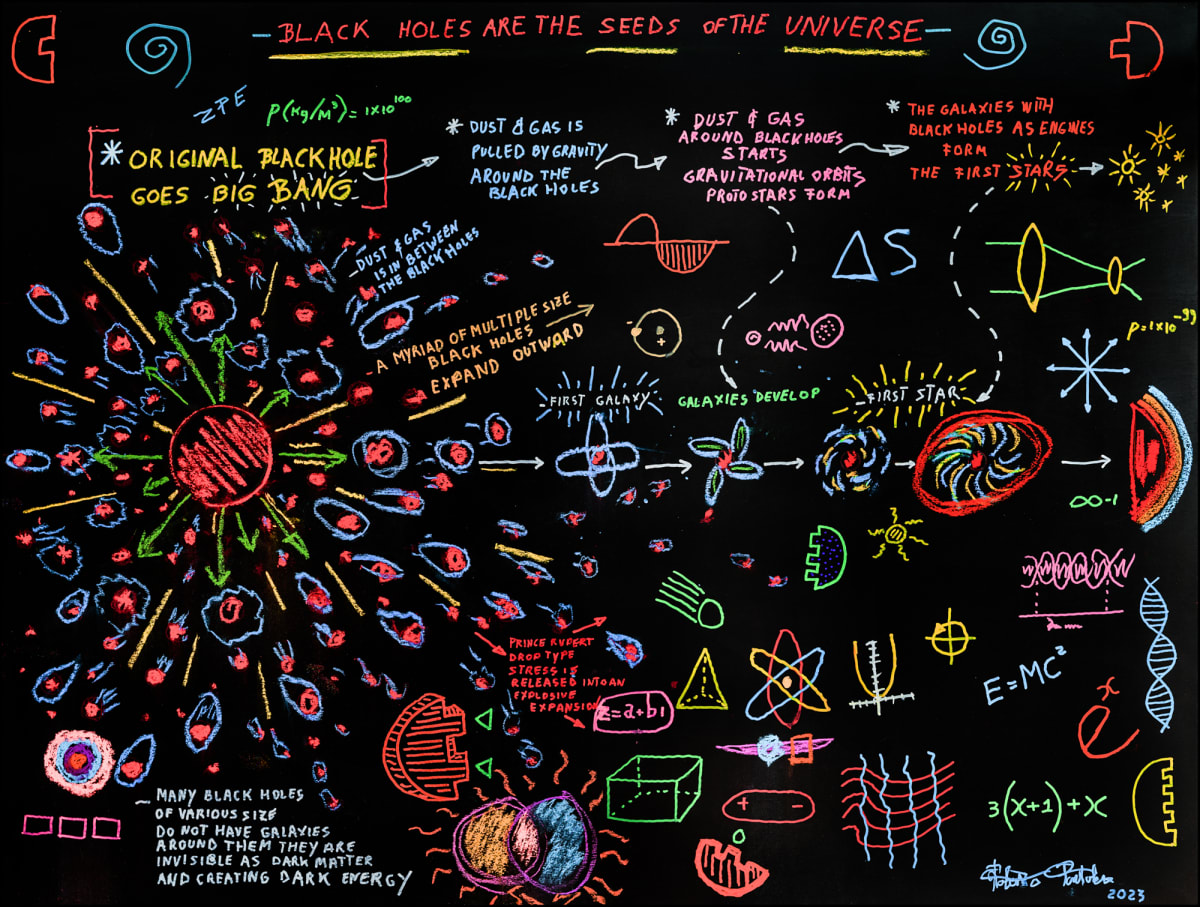 – BLACK HOLES ARE THE SEEDS OF THE UNIVERSE –
ZPE
P(kg/m³)= 1x10¹⁰⁰
* ORIGINAL BLACK HOLE
GOES BIG BANG
* DUST & GAS IS
PULLED BY GRAVITY
AROUND THE
BLACK HOLES
* DUST & GAS
AROUND BLACK HOLES
STARTS
GRAVITATIONAL ORBITS
PROTO STARS FORM
* THE GALAXIES WITH
BLACK HOLES AS ENGINES
FORM
THE FIRST STARS
– DUST & GAS
IS IN BETWEEN
THE BLACK HOLES
– A MYRIAD OF MULTIPLE SIZE
BLACK HOLES
EXPAND OUTWARD
ΔS
P=1x10⁻⁹⁹
– FIRST GALAXY
GALAXIES DEVELOP
– FIRST STAR
∞-1
PRINCE RUPERT
DROP TYPE
STRESS IS
RELEASED INTO AN
EXPLOSIVE
EXPANSION
z=a+bi
E=MC²
eˣ
+ −
3(x+1)+x
– MANY BLACK HOLES
OF VARIOUS SIZE
DO NOT HAVE GALAXIES
AROUND THEM THEY ARE
INVISIBLE AS DARK MATTER
AND CREATING DARK ENERGY
2023